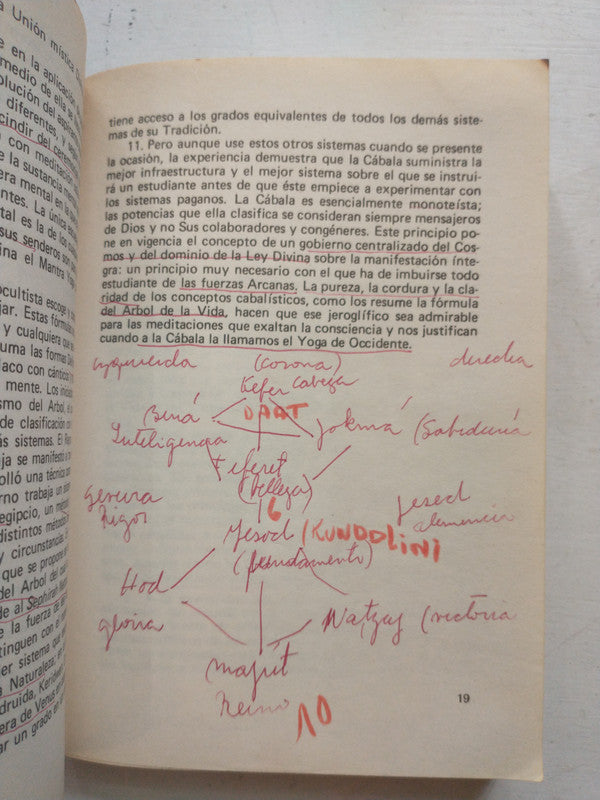 a Unión mística
e en la aplicación
medio de ella se
olución del aspirante
diferentes, y según
cindir del ceremo
con meditación
e la sustancia men
era mental en la
entes. La única se
tal es la de los ca
sus senderos son
ina el Mantra Yoga
ocultista escoge
jar. Estas fórmu
y cualquiera que s
uma las formas
aco con cánticos
mente. Los inicia
smo del Arbol, el
de clasificación con
ás sistemas. El
ja se manifiesta
rolló una técnica con
erno trabaja un
egipcio, un
distintos métodos
y circunstancia.
que se propone
del Arbol del
de al Sephirah
e la fuerza de
tinguen con el
er sistema que
a Naturaleza,
druida,
era de Venus
ar un grado en
tiene acceso a los grados equivalentes de todos los demás siste-
mas de su Tradición.
11. Pero aunque use estos otros sistemas cuando se presente
la ocasión, la experiencia demuestra que la Cábala suministra la
mejor infraestructura y el mejor sistema sobre el que se instrui-
rá un estudiante antes de que éste empiece a experimentar con
los sistemas paganos. La Cábala es esencialmente monoteísta;
las potencias que ella clasifica se consideran siempre mensajeros
de Dios y no Sus colaboradores y congéneres. Este principio po-
ne en vigencia el concepto de un gobierno centralizado del Cos-
mos y del dominio de la Ley Divina sobre la manifestación ínte-
gra: un principio muy necesario con el que ha de imbuirse todo
estudiante de las fuerzas Arcanas. La pureza, la cordura y la cla-
ridad de los conceptos cabalísticos, como los resume la fórmula
del Arbol de la Vida, hacen que ese jeroglífico sea admirable
para las meditaciones que exaltan la consciencia y nos justifican
cuando a la Cábala la llamamos el Yoga de Occidente.
izquierda (corona) derecha
Kefer Cabeza
Biná DAAT Jokmá (Sabiduría
Inteligencia
Tiferet
(belleza)
Gevura 6 Jesed
Rigor clemencia
Yesod (KUNDALINI
(fundamento)
Hod
Natzaj (victoria
gloria
majut
Reino 10
19